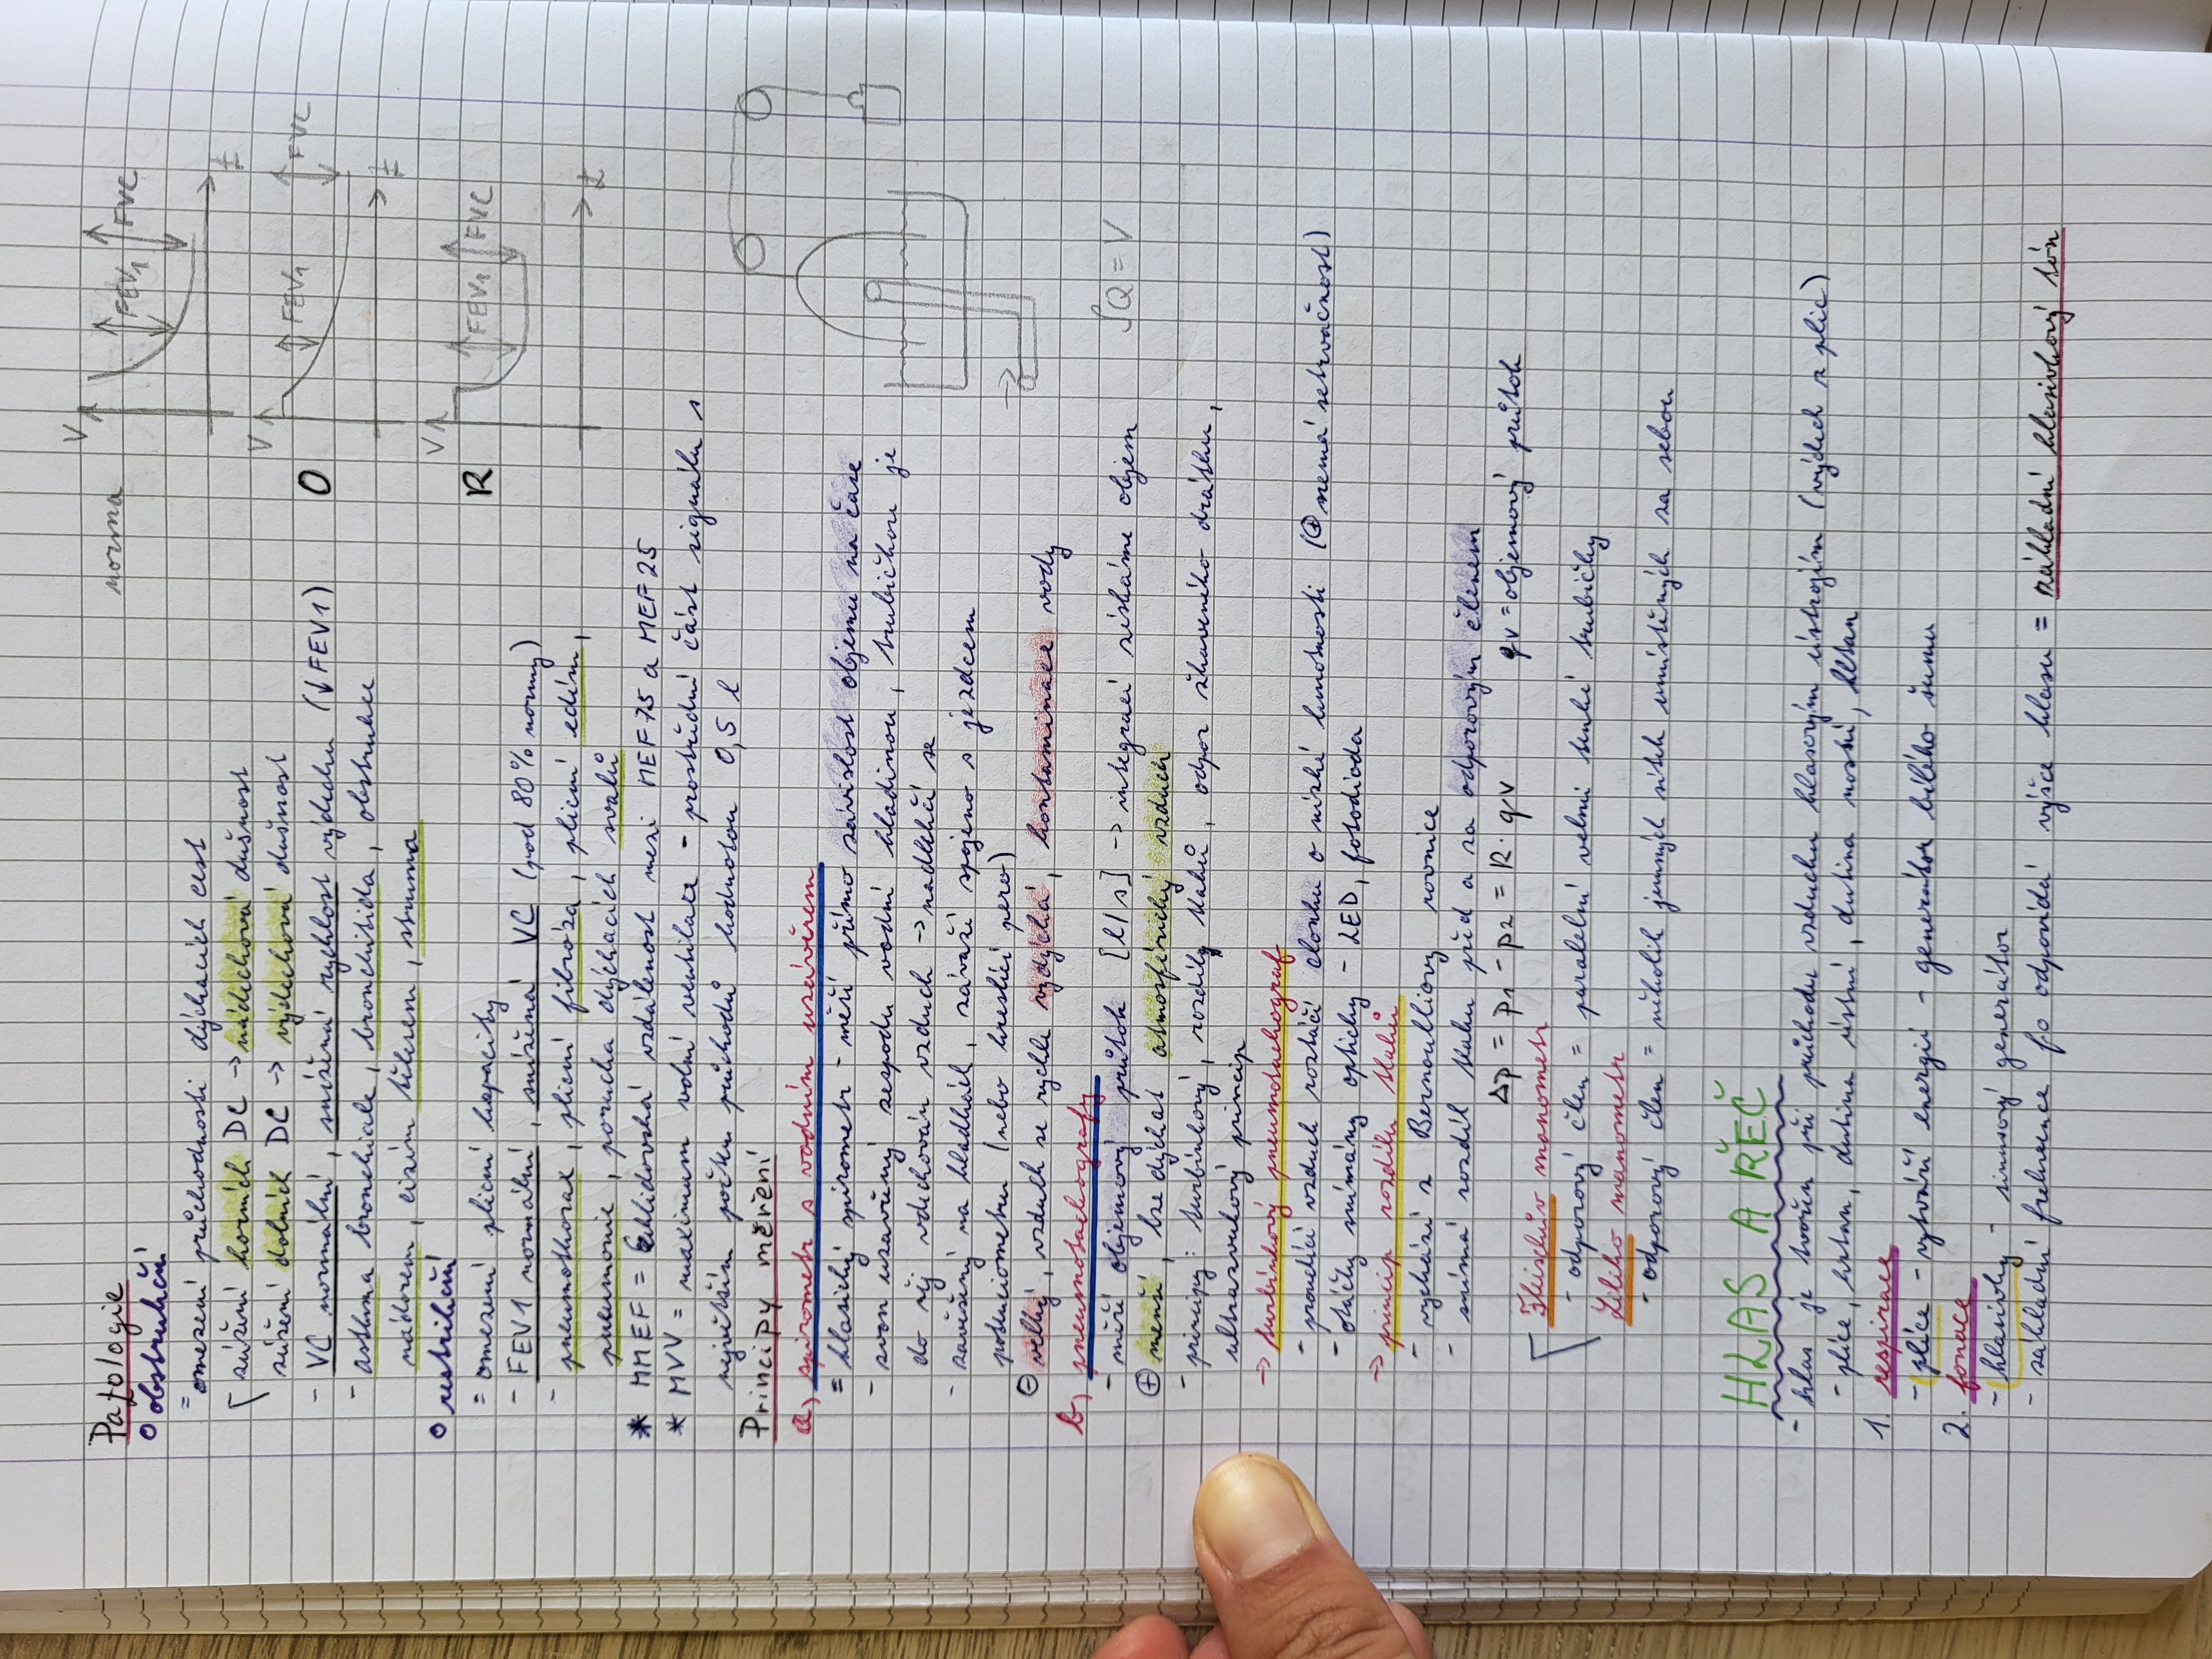 Patologie
norma
V
FEV1
FVC
t
o obstrukční
= omezení průchodnosti dýchacích cest
zúžení horních DC → nádechová dušnost
zúžení dolních DC → výdechová dušnost
- VC normální, snížená rychlost výdechu (↓FEV1)
O
V
FEV1
FVC
t
- asthma bronchiale, bronchitida, obstrukce
nádorem, cizím tělesem, struma
o restrikční
= omezení plicní kapacity
R
V
FEV1
FVC
t
- FEV1 normální, snížená VC (pod 80% normy)
- pneumothorax, plicní fibróza, plicní edém,
pneumonie, porucha dýchacích svalů
* MMEF = Euklidovská vzdálenost mezi MEF75 a MEF25
* MVV = maximum volní ventilace - prostřední část signálu s
největším počtem průchodů hodnotou 0,5 l
Principy měření
a) spirometr s vodním uzávěrem
= klasický spirometr - měří přímo závislost objemu na čase
- zvon uzavřený zespodu vodní hladinou, trubičkou je
do něj vdechován vzduch → nadlehčí se
- zavěšený na kladkách, závaží spojeno s jezdcem
potenciometru (nebo kreslící pero)
⊖ velký, vzduch se rychle vydýchá, kontaminace vody
b) pneumotachografy
- měří objemový průtok [l/s] → integrací získáme objem
∫Q = V
⊕ menší, lze dýchat atmosférický vzduch
- principy: turbínkový, rozdíly tlaků, odpor žhaveného drátku,
ultrazvukový princip
→ turbínkový pneumotachograf
- proudící vzduch roztáčí clonku o nízké hmotnosti (⊕ nemá setrvačnost)
- otáčky snímány opticky - LED, fotodioda
→ princip rozdílu tlaků
- vychází z Bernoulliovy rovnice
- snímá rozdíl tlaku před a za odporovým členem
Δp = p1 - p2 = R · qv
qv = objemový průtok
Fleischův manometr
- odporový člen = paralelní velmi tenké trubičky
Lilího manometr
- odporový člen = několik jemných sítek umístěných za sebou
HLAS A ŘEČ
- hlas je tvořen při průchodu vzduchu hlasovým ústrojím (výdech z plic)
- plíce, hrtan, dutina ústní, dutina nosní, hltan
1. respirace
- plíce - vytváří energii - generátor bílého šumu
2. fonace
- hlasivky - sinusový generátor
- základní frekvence fo odpovídá výšce hlasu = základní hlasivkový tón